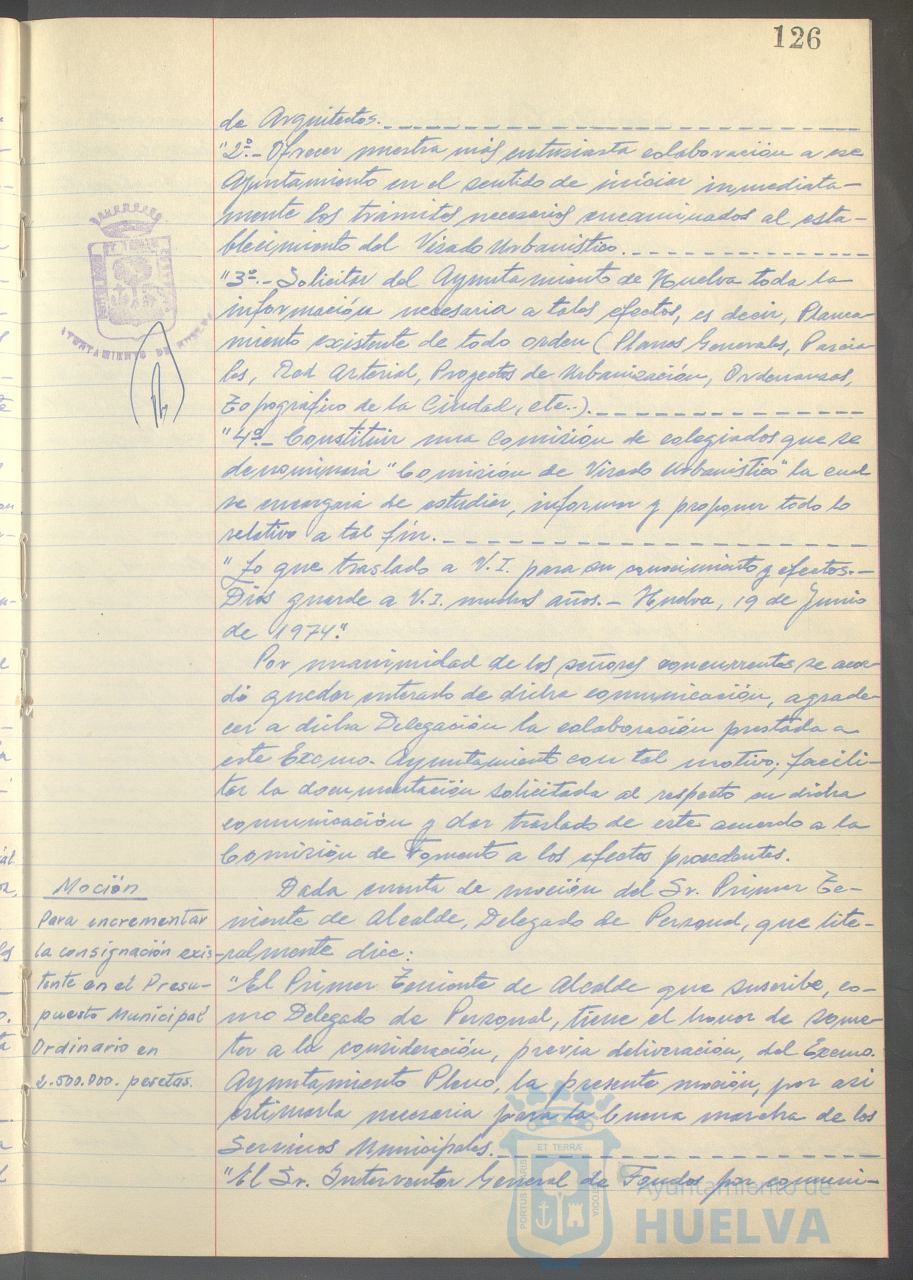 126
de Arquitectos.
"2º.- Ofrecer nuestra más entusiasta colaboración a ese
Ayuntamiento en el sentido de iniciar inmediata-
mente los trámites necesarios encaminados al esta-
blecimiento del Visado Urbanístico.
"3º.- Solicitar del Ayuntamiento de Huelva toda la
información necesaria a tales efectos, es decir, Planea-
miento existente de todo orden (Planos Generales, Parcia-
les, Red Arterial, Proyectos de Urbanización, Ordenanzas,
Topográfico de la Ciudad, etc..).
"4º.- Constituir una Comisión de colegiados que se
denominará "Comisión de Visado Urbanístico" la cual
se encargaría de estudiar, informar y proponer todo lo
relativo a tal fin.
"Lo que traslado a V.I. para su conocimiento y efectos.-
Dios guarde a V.I. muchos años.- Huelva, 19 de Junio
de 1974."
Por unanimidad de los señores concurrentes se acor-
dó quedar enterado de dicha comunicación, agrade-
cer a dicha Delegación la colaboración prestada a
este Excmo. Ayuntamiento con tal motivo; facili-
tar la documentación solicitada al respecto en dicha
comunicación y dar traslado de este acuerdo a la
Comisión de Fomento a los efectos procedentes.
Moción
Para incrementar
la consignación exis-
tente en el Presu-
puesto Municipal
Ordinario en
2.500.000. pesetas.
Dada cuenta de moción del Sr. Primer Te-
niente de Alcalde, Delegado de Personal, que lite-
ralmente dice:
"El Primer Teniente de Alcalde que suscribe, co-
mo Delegado de Personal, tiene el honor de some-
ter a la consideración, previa deliveración, del Excmo.
Ayuntamiento Pleno, la presente moción, por así
estimarla necesaria para la buena marcha de los
Servicios Municipales.
"El Sr. Interventor General de Fondos por comuni-
AYUNTAMIENTO DE HUELVA
ET TERRÆ
PORTUS MARIS
CUSTODIA
Ayuntamiento de
HUELVA